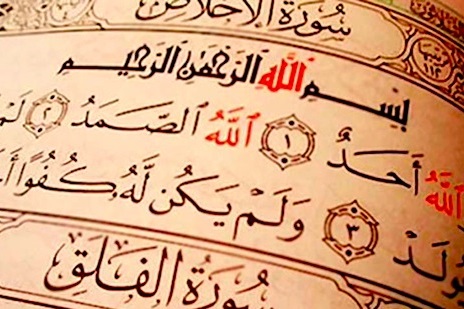 سُورَةُ الإِخْلَاصِ
بِسْمِ ٱللَّهِ ٱلرَّحْمَٰنِ ٱلرَّحِيمِ
ٱللَّهُ أَحَدٌ ١ ٱللَّهُ ٱلصَّمَدُ ٢ لَمْ
يُولَدْ ٣ وَلَمْ يَكُن لَّهُۥ كُفُوًا
سُورَةُ الْفَلَقِ